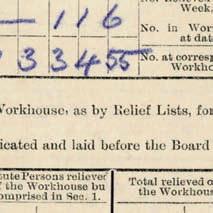 Week,
— 1 1 6
No. in Work
at dat
2 3 3 4 5 5
No. at corresp
Workho
Workhouse, as by Relief Lists, for
icated and laid before the Board
ute Persons relieve
f the Workhouse bu
omprised in Sec. 1.
Total relieved o
the Workho